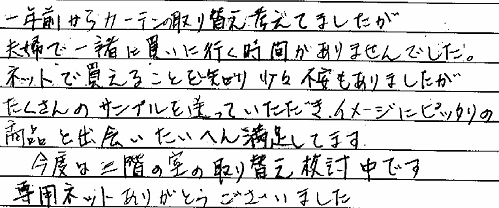 一年前からカーテンの取り替え考えてましたが
夫婦で一諸に買いに行く時間がありませんでした。
ネットで買えることを知り少々不安もありましたが
たくさんのサンプルを送っていただき、イメージにピッタリの
商品と出会いたいへん満足してます
今度は二階の室の取り替え検討中です
専用ネットありがとうございました